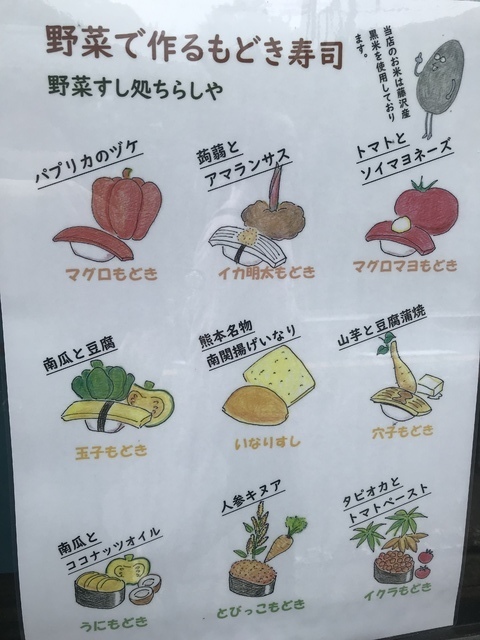 野菜で作るもどき寿司
野菜すし処ちらしや
当店のお米は藤沢産
黒米を使用しており
ます。
パプリカのヅケ
マグロもどき
蒟蒻と
アマランサス
イカ明太もどき
トマトと
ソイマヨネーズ
マグロマヨもどき
南瓜と豆腐
玉子もどき
熊本名物
南関揚げいなり
いなりすし
山芋と豆腐蒲焼
穴子もどき
南瓜と
ココナッツオイル
うにもどき
人参キヌア
とびっこもどき
タピオカと
トマトペースト
イクラもどき